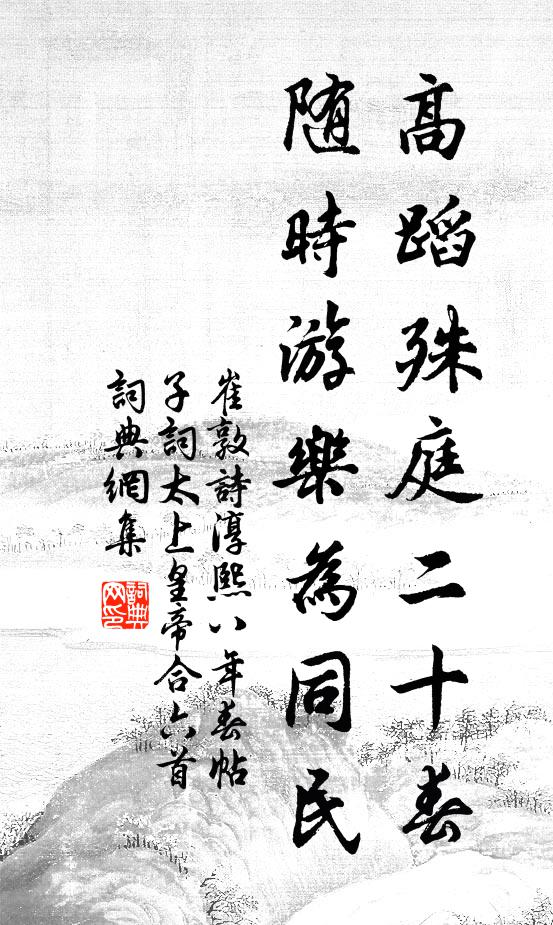 高蹈殊庭二十春
随時游樂為同民
崔敦詩淳熙八年春帖
子詞太上皇帝合六首
詞典網集
詞典
网印